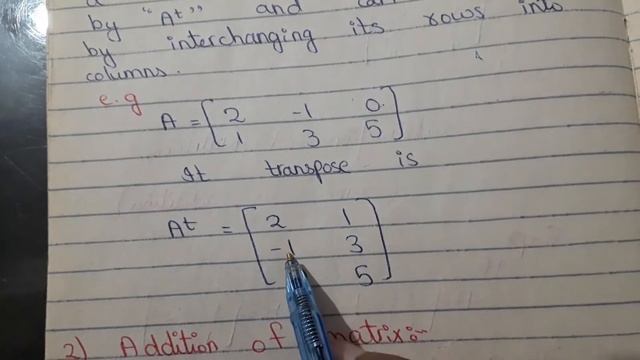 by "At" and
by interchanging its rows into
columns.
e.g
A = [2 -1 0
1 3 5]
It transpose is
At = [2 1
-1 3
5]
2) Addition of matrix: